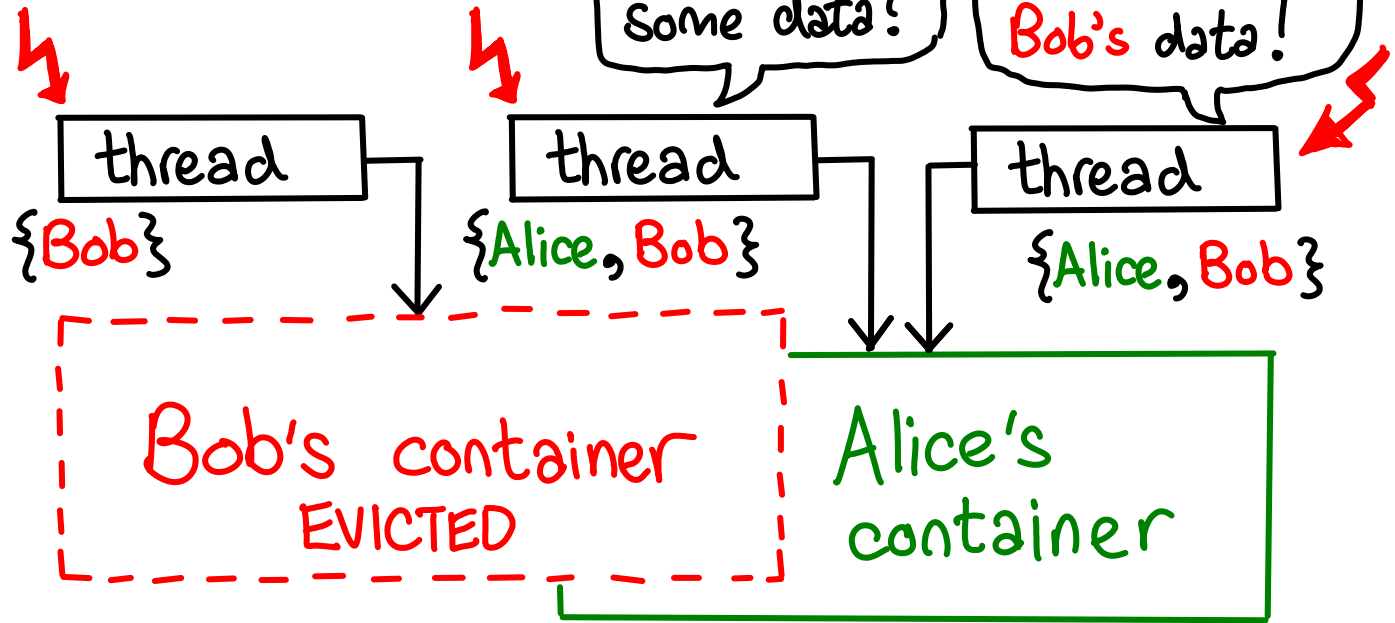 some data!
Bob's data!
thread
thread
thread
{Bob}
{Alice, Bob}
{Alice, Bob}
Bob's container
EVICTED
Alice's
container